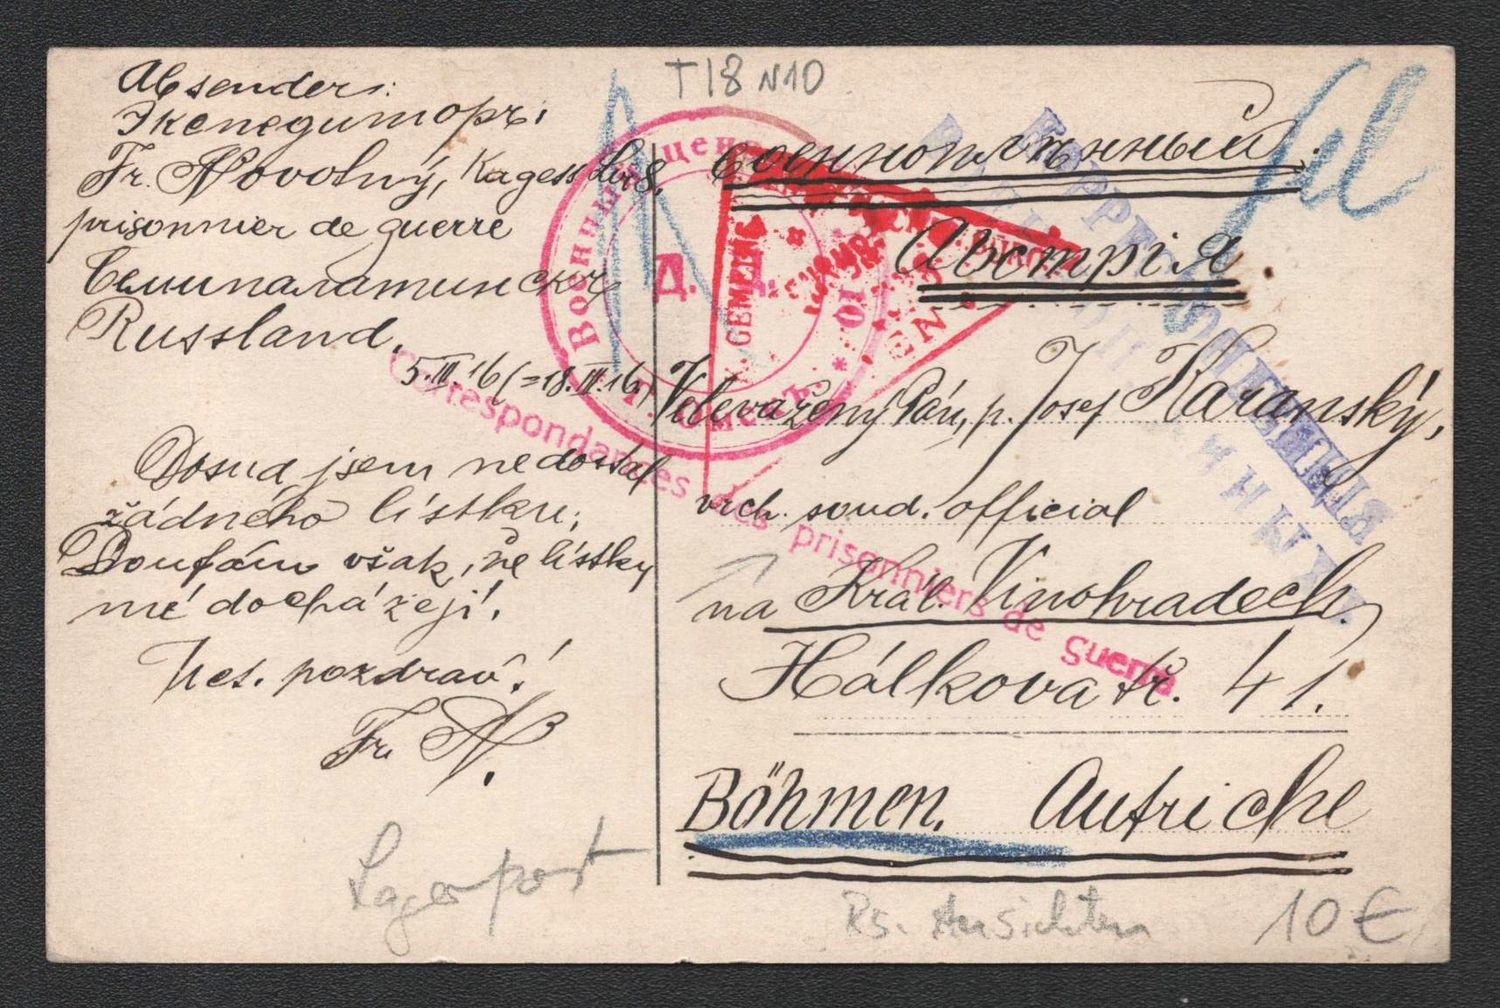 T18 N10
Absender:
Экспедиторъ:
Fr. Novotný,
prisonnier de guerre
Семипалатинскъ
Russland.
5.III.16 (=18.III.16.)
Dosud jsem nedostal
žádného lístku;
Doufám však, že lístky
mé docházejí.
Uct. pozdrav!
Fr. N.
Военноплѣнный.
Австрія.
Velevážený Pán, p. Josef Karanský,
vrch. soud. official
na Král. Vinohradech.
Hálkova tř. 41.
Böhmen. Autriche
Correspondances des prisonniers de guerre
КОРРЕСПОНДЕНЦІЯ
ВОЕННОПЛѢННЫХЪ
Военный цензоръ
Д. Ю.
г. Омскъ. *
GEMEINS
Lagerpost
Rs. Ansichten
10 €